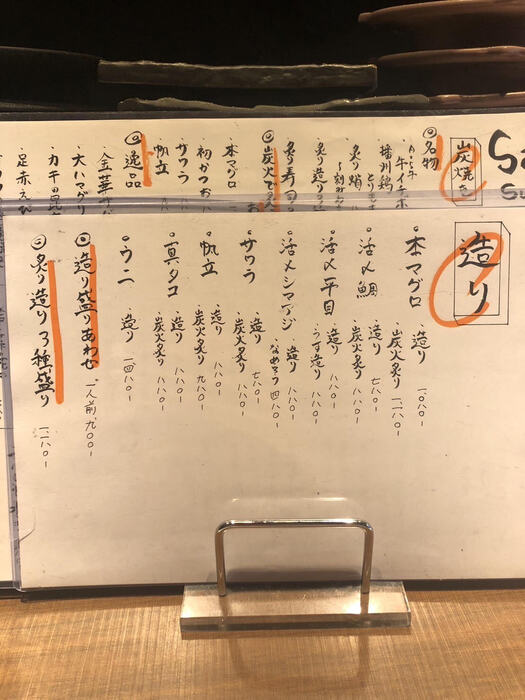 炭焼き
名物
牛イチボ
播州鶏
炙り鯖
炙り造り
炙り寿司
炭火で
本マグロ
初かつお
サワラ
帆立
逸品
大ハマグリ
足赤えび
造り
・本マグロ 造り 一、〇八〇-
炭火炙り 一、一八〇-
・活〆鯛 造り 七八〇-
炭火炙り 八八〇-
・活〆平目 造り 八八〇-
うす造り 八八〇-
・活〆シマアジ 造り 八八〇-
なめろう 四八〇-
・サワラ 造り 七八〇-
炭火炙り 八八〇-
・帆立 造り 八八〇-
炭火炙り 九八〇-
・真タコ 造り 八八〇-
炭火炙り 八八〇-
・ウニ 造り 一四八〇-
造り盛りあわせ 一人前、九〇〇-
炙り造り3種盛り 一、二八〇-